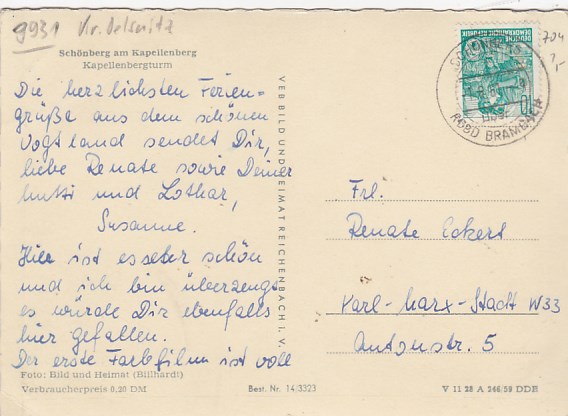 9931 Kr. Oelsnitz
Schönberg am Kapellenberg
Kapellenbergturm
Die herzlichsten Ferien-
grüße aus dem schönen
Vogtland sendet Dir,
liebe Renate sowie Deiner
Mutti und Lothar,
Susanne.
Hier ist es sehr schön
und ich bin überzeugt
es würde Dir ebenfalls
hier gefallen.
Der erste Farbfilm ist voll
Foto: Bild und Heimat (Billhardt)
Verbraucherpreis 0,20 DM
VEB BILD UND HEIMAT REICHENBACH I. V.
Best. Nr. 14/3323
DEUTSCHE DEMOKRATISCHE REPUBLIK
10
SCHÖNBERG
BRAMBACH
704
Frl.
Renate Eckert
Karl-Marx-Stadt W33
Antonstr. 5
V 11 28 A 246/59 DDR